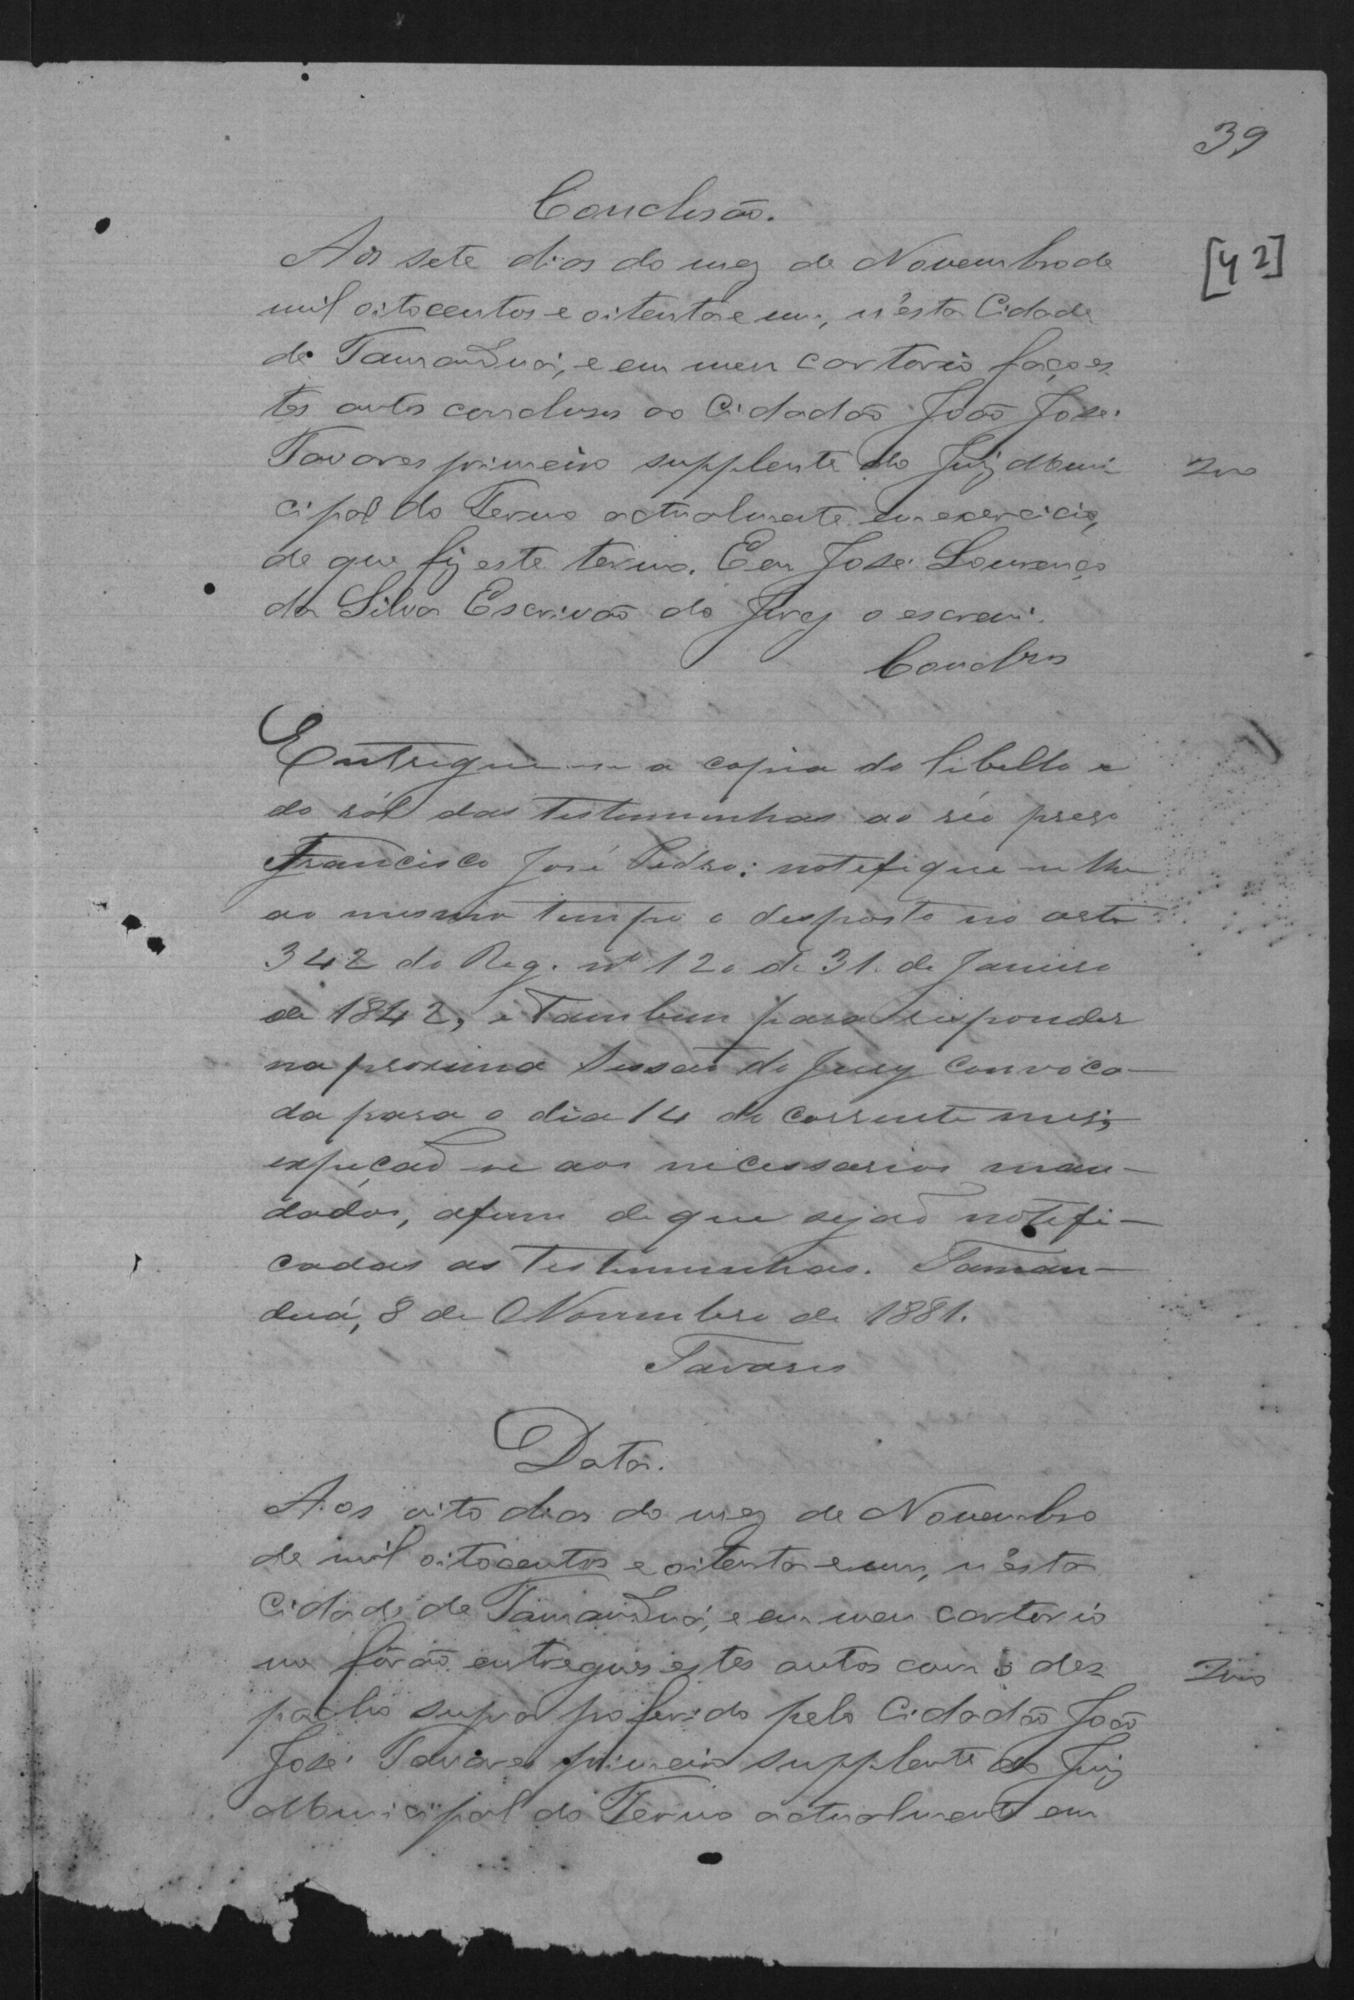 39
[42]
Conclusão.
Aos sete dias do mez de Novembro de
mil oitocentos e oitenta e um, n'esta Cidade
de Tamanduá, e em meu cartorio faço es
tes autos conclusos ao Cidadão João José
Tavares primeiro supplente do Juiz Muni
cipal do Termo actualmente em exercicio,
de que fiz este termo. E eu José Lourenço
da Silva Escrivão do Jury o escrevi.
Conclsos
Entregue-se a copia do libello e
do ról das testemunhas ao réo preso
Francisco José Pedro: notifique-se lhe
ao mesmo tempo o disposto no arto
342 do Reg. nº 120 de 31 de Janeiro
de 1842, e tambem para responder
na proxima sessão do Jury convoca-
da para o dia 14 do corrente mes;
expeção-se aos necessarios man-
dados, afim de que sejão notifi-
cadas as testemunhas. Taman-
duá, 8 de Novembro de 1881.
Tavares
Data.
Aos oito dias do mez de Novembro
de mil oitocentos e oitenta e um, n'esta
Cidade de Tamanduá, e em meu cartorio
me fôrão entregues estes autos com o des
pacho supra proferido pelo Cidadão João
José Tavares primeiro supplente do Juiz
Municipal do Termo actualmente em